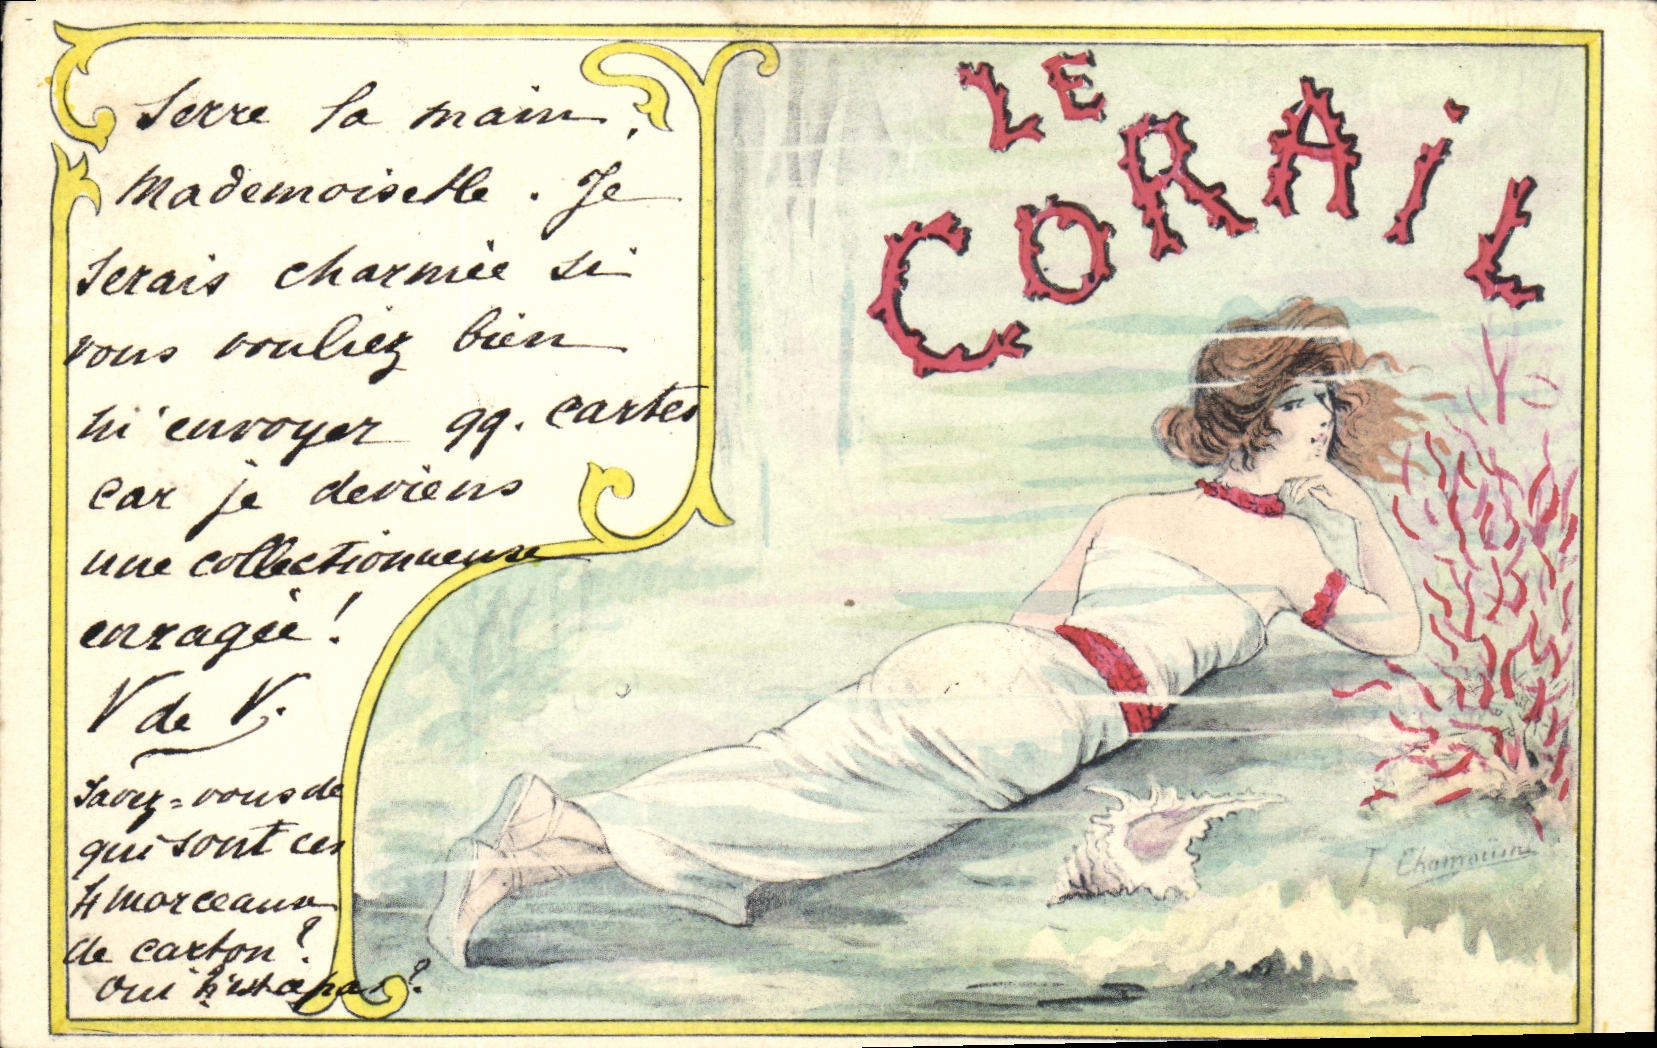 Serre la main,
Mademoiselle. Je
serais charmée si
vous vouliez bien
m'envoyer qq. cartes
car je deviens
une collectionneuse
enragée!
V de V.
Savez-vous de
qui sont ces
4 morceaux
de carton?
Oui n'est ce pas?
LE
CORAiL